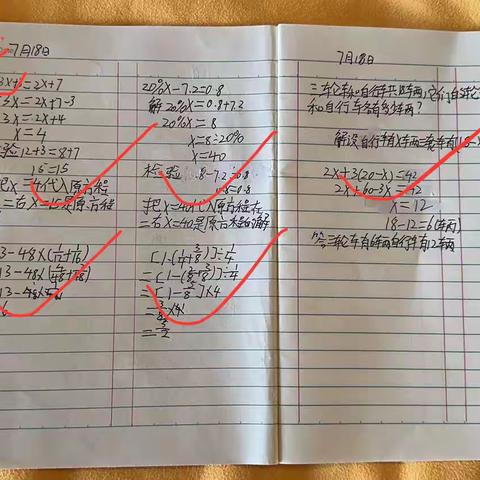 7月18日
3x+3=2x+7
3x=2x+7-3
3x=2x+4
x=4
检验12+3=8+7
15=15
把x=4代入原方程
二右x=15是原方程
3-48×(1/4+1/16)
13-48×(
13-48×
20%x-7.2=0.8
解20%x=0.8+7.2
20%x=8
x=8÷20%
x=40
检验 8-7.2=0.8
0.8=0.8
把x=40代入原方程左
二右x=40是原方程的解
[1-(1/4+3/8)]÷1/4
=[1-(2/8+3/8)]÷1/4
=[1-5/8]×4
=3/8×4
=3/2
7月18日
三轮车和自行车共18车两,它们的轮
和自行车各多少车两?
解设自行车有x车两三轮车有(18-x)
2x+3(20-x)=42
2x+60-3x=42
x=12
18-12=6(车两)
答三轮车有6车两自行车有12车两